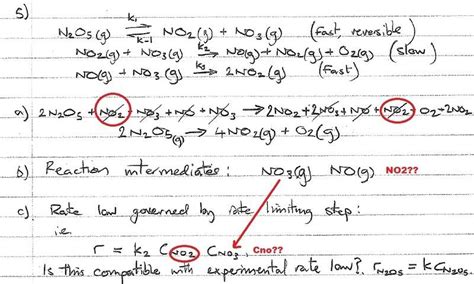 5)
N₂O₅(g) ⇌ NO₂(g) + NO₃(g) (fast, reversible)
k₁
k₋₁
NO₂(g) + NO₃(g) →k₂ NO(g) + NO₂(g) + O₂(g) (slow)
NO(g) + NO₃(g) →k₃ 2NO₂(g) (fast)
a) 2N₂O₅ + NO₂ + NO₃ + NO + NO₃ → 2NO₂ + 2NO₃ + NO + NO₂ + O₂ + 2NO₂
2N₂O₅(g) → 4NO₂(g) + O₂(g)
b) Reaction intermediates: NO₃(g) NO(g) NO2??
c) Rate law governed by rate limiting step:
i.e.
r = k₂ C_NO₂ C_NO₃. Cno??
Is this compatible with experimental rate law? r_N₂O₅ = k C_N₂O₅